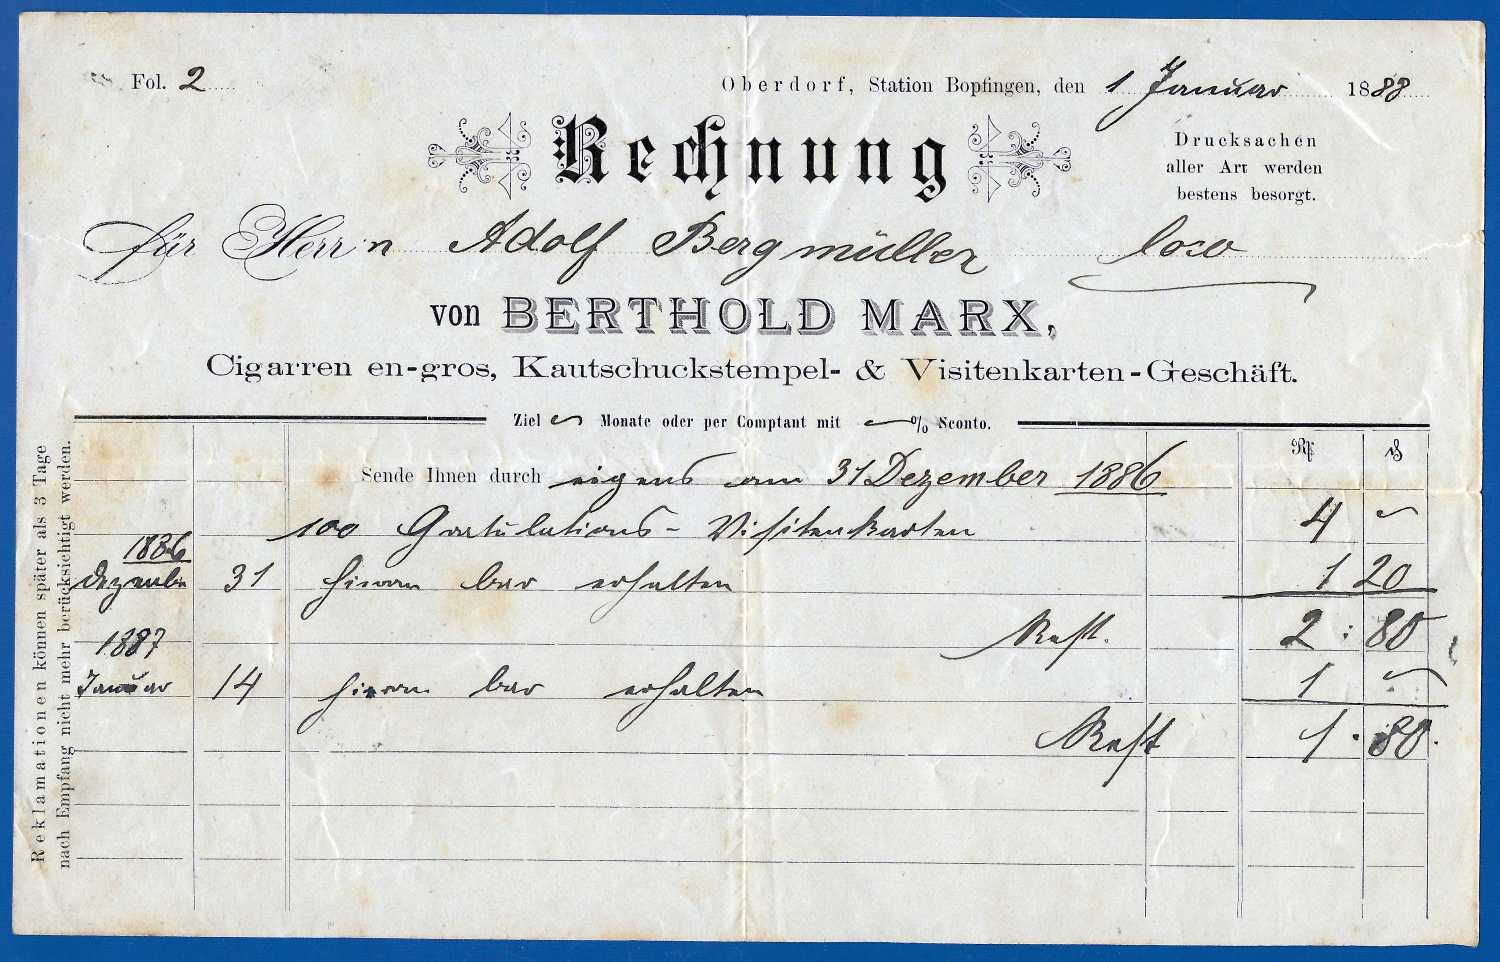 Fol. 2
Oberdorf, Station Bopfingen, den 1 Januar 1888
Rechnung
Drucksachen
aller Art werden
bestens besorgt.
für Herrn Adolf Bergmüller loco
von BERTHOLD MARX,
Cigarren en-gros, Kautschuckstempel- & Visitenkarten-Geschäft.
Ziel ~ Monate oder per Comptant mit ~ % Sconto.
Sende Ihnen durch eigens am 31 Dezember 1886
100 Gratulations- Visitenkarten 4 ~
1886
Dezember 31 hieran bar erhalten 1 20
Rest. 2 : 80
1887
Januar 14 hieran bar erhalten 1 ~
Rest 1 . 80.
Reklamationen können später als 3 Tage
nach Empfang nicht mehr berücksichtigt werden.